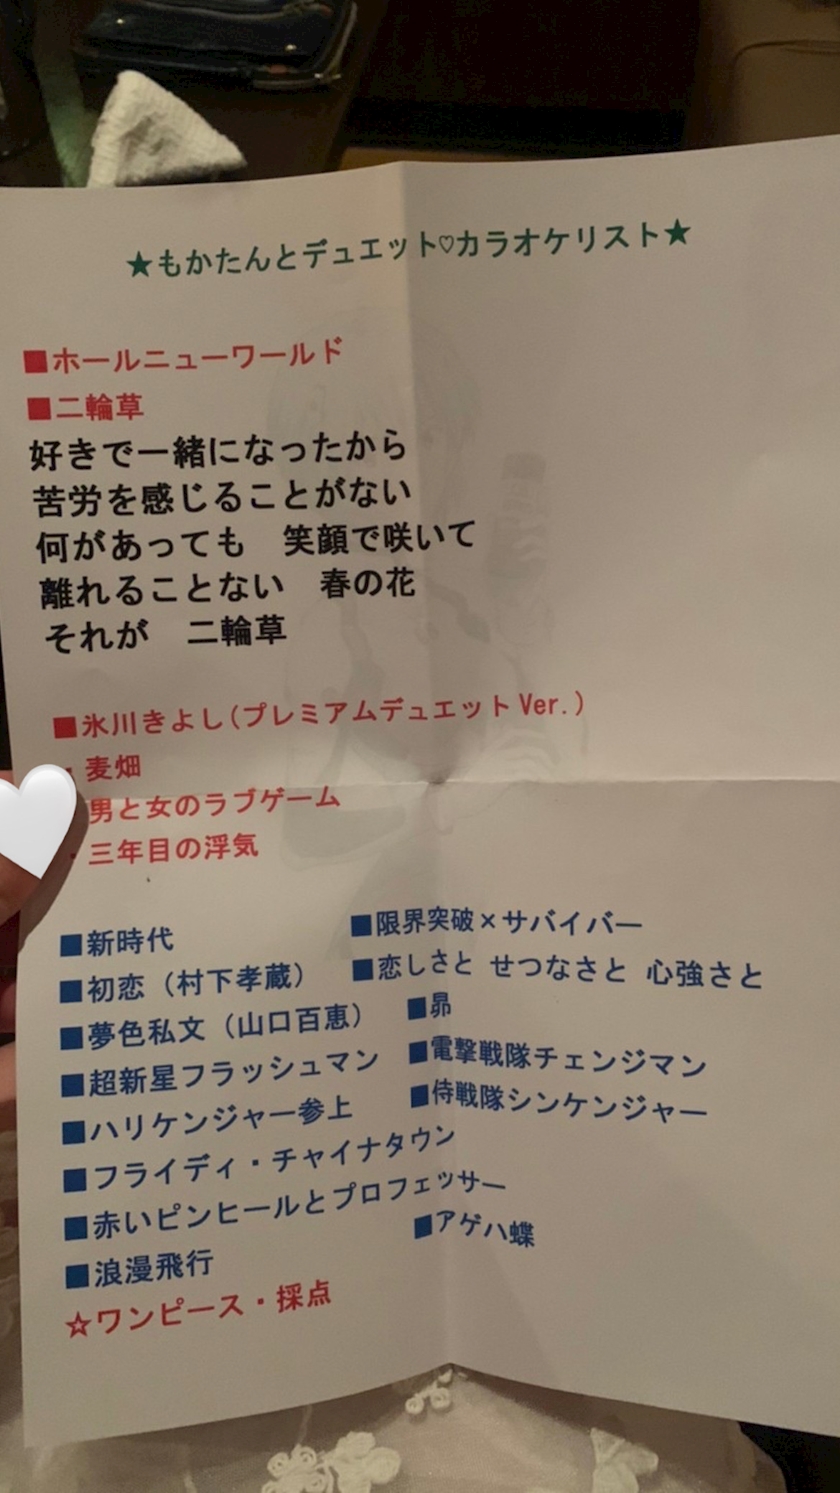 ★もかたんとデュエット♡カラオケリスト★
■ホールニューワールド
■二輪草
好きで一緒になったから
苦労を感じることがない
何があっても　笑顔で咲いて
離れることない　春の花
それが　二輪草
■氷川きよし(プレミアムデュエット Ver.)
・麦畑
男と女のラブゲーム
・三年目の浮気
■新時代
■初恋（村下孝蔵）
■夢色私文（山口百恵）
■超新星フラッシュマン
■ハリケンジャー参上
■フライディ・チャイナタウン
■赤いピンヒールとプロフェッサー
■浪漫飛行
☆ワンピース・採点
■限界突破×サバイバー
■恋しさと せつなさと 心強さと
■昴
■電撃戦隊チェンジマン
■侍戦隊シンケンジャー
■アゲハ蝶